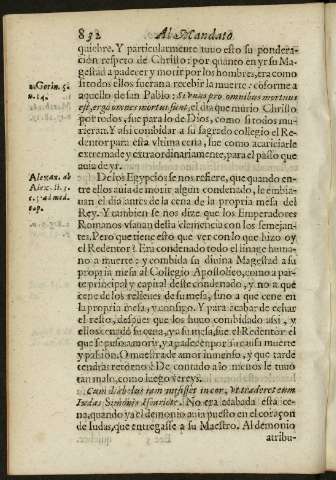 832 Al Mandato
quiebre. Y particularmente tuuo esto su ponderaci-
ón respeto de Christo: por quanto en yr su Ma-
gestad a padecer y morir por los hombres, era como
si todos ellos fueran a recebir la muerte: cõforme a
aquello de san Pablo: Si vnus pro omnibus mortuus
est, ergo omnes mortui sunt, el dia que murio Christo
por todos, fue para lo de Dios, como si todos mu-
rieran. Y assi combidar a su sagrado collegio el Re-
dentor para esta vltima cena, fue como acariciarle
extremada y extraordinariamente, para el passo que
auia de yr.
2. Corin. 5.
n. 14.
De los Egypcios se nos refiere, que quando en-
tre ellos auia de morir algun condenado, le embia-
uan el dia antes de la cena de la propria mesa del
Rey. Y tambien se nos dize que los Emperadores
Romanos vsauan desta clemencia con los semejan-
tes. Pero que tiene esto que ver con lo que hizo oy
el Redentor? Era condenado todo el linaje huma-
no a muerte: y combida su diuina Magestad a su
propria mesa al Collegio Apostolico, como a par-
te principal y capital deste condenado, y no a que
cene de los relieues de su mesa, sino a que cene en
la propria mesa, y consigo. Y para acabar de echar
el resto, despues que los huuo combidado assi, y
ellos cenado su cena, ya su mesa, fue el Redentor el
que se passo a morir, y a padecer por su causa muerte
y passion. O muestra de amor inmenso, y que tarde
tendra retorno! De contado a lo menos le tuuo
tan malo, como luego vereys.
Alexan. ab
Alex. li. 3.
Cum diabolus iam misisset in cor, vt traderet eum
Iudas Simonis Iscariote. No era acabada esta ce-
na, quando ya el demonio auia puesto en el coraçon
de Iudas, que entregasse a su Maestro. Al demonio
atribu-